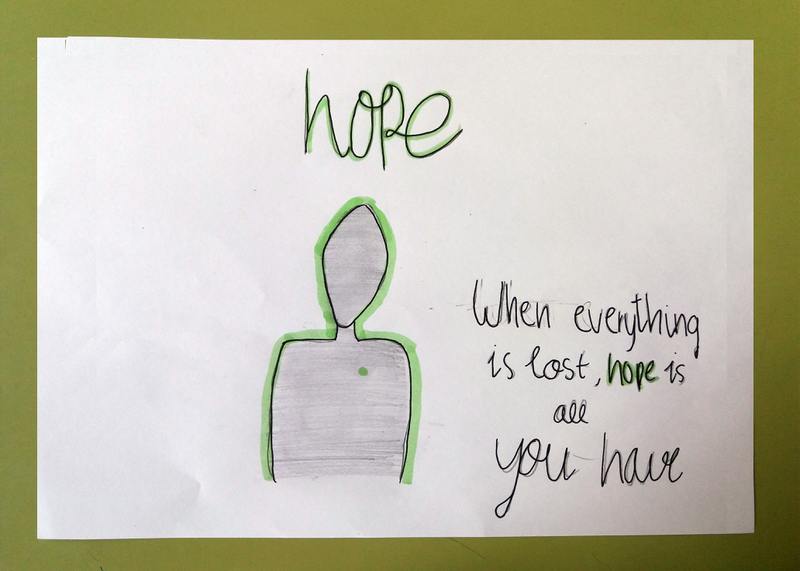 hope
When everything
is lost, hope is
all
you have